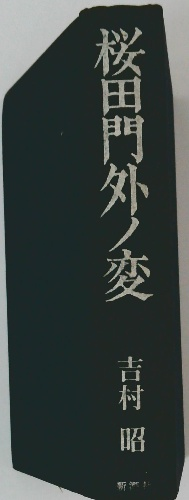 桜田門外ノ変
吉村 昭
新潮社